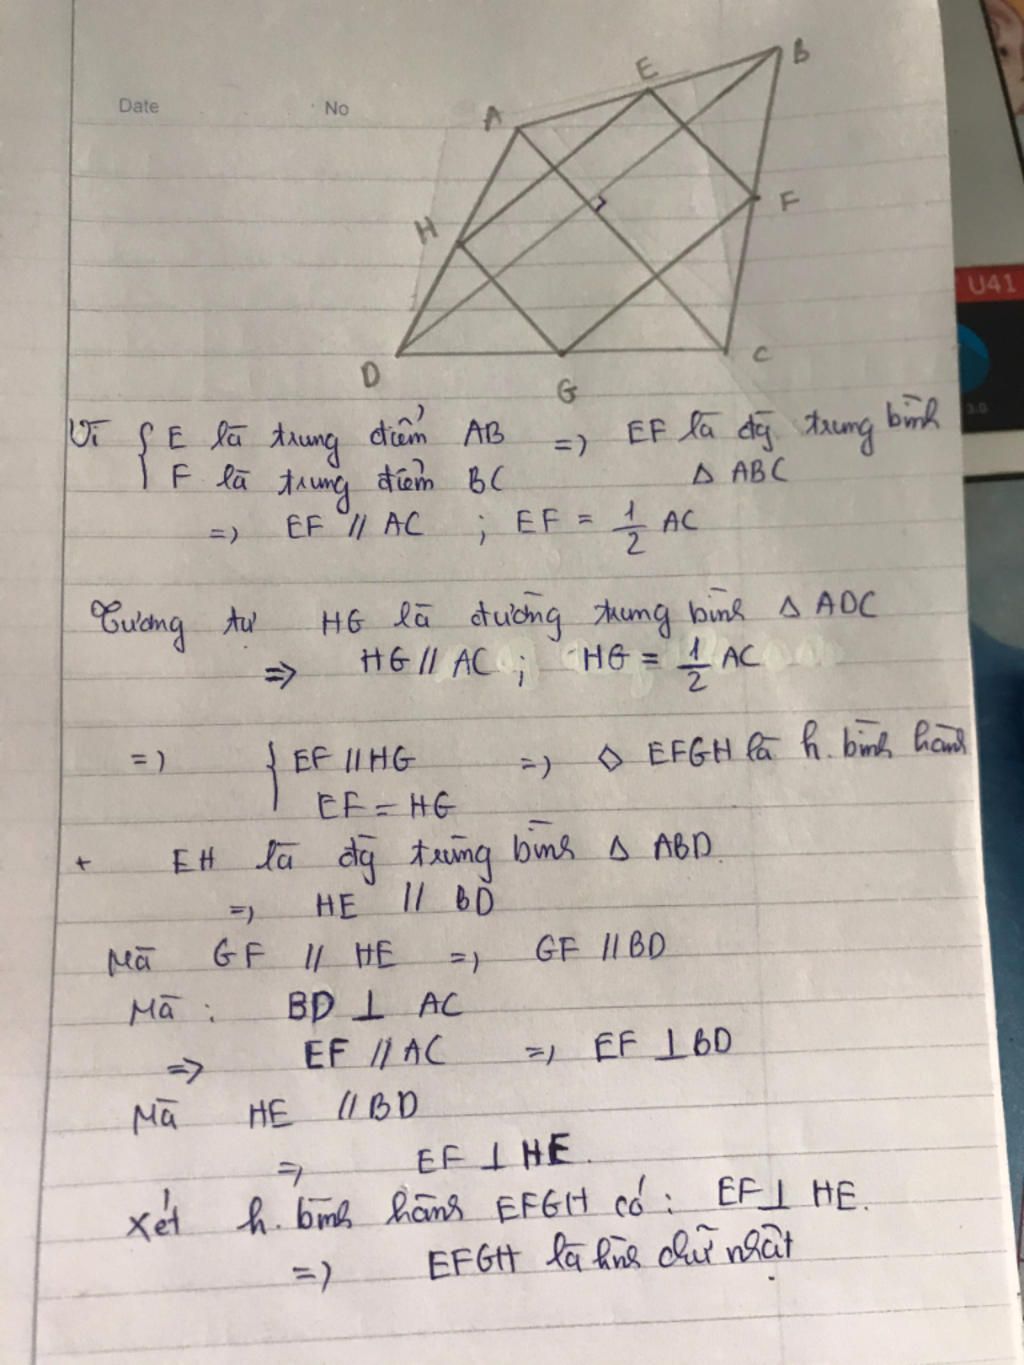 Date
No
B
E
A
F
H
U41
3.0
D
G
C
Vì { E là trung điểm AB => EF là đg trung bình
F là trung điểm BC Δ ABC
=> EF // AC ; EF = 1/2 AC
Tương tự HG là đường trung bình Δ ADC
=> HG // AC ; HG = 1/2 AC
=> { EF // HG => ◇ EFGH là h. bình hành
EF = HG
+ EH là đg trung bình Δ ABD.
=> HE // BD
Mà GF // HE => GF // BD
Mà : BD ⊥ AC
=> EF // AC => EF ⊥ BD
Mà HE // BD
=> EF ⊥ HE.
Xét h. bình hành EFGH có : EF ⊥ HE.
=> EFGH là hình chữ nhật